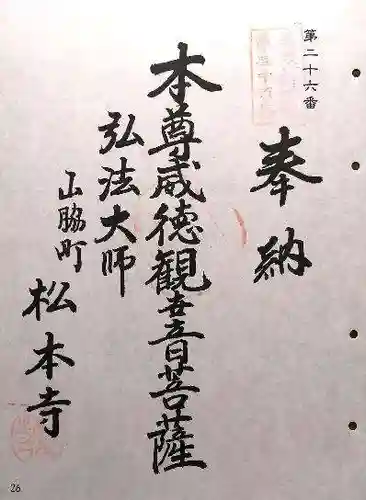 第二十六番
奉納
本尊威徳観音菩薩
弘法大師
山脇町
松本寺
26